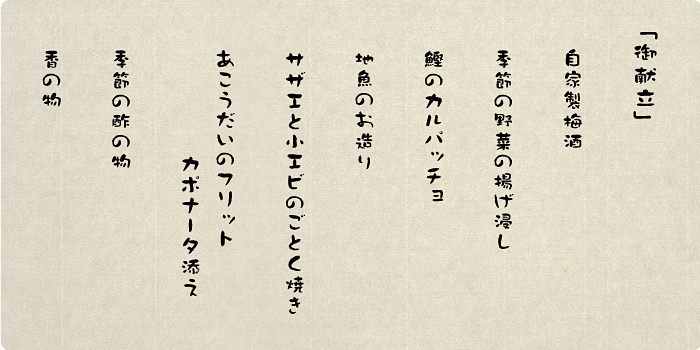 「御献立」
自家製梅酒
季節の野菜の揚げ浸し
鰹のカルパッチョ
地魚のお造り
サザエと小エビのごとく焼き
あこうだいのフリット
カポナータ添え
季節の酢の物
香の物